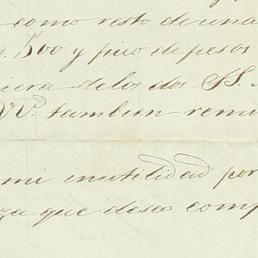 como resto de una
500 y pico de pesos
iera de los dos SS.
VV. tambien remi
mi inutilidad por
za que deseo comp